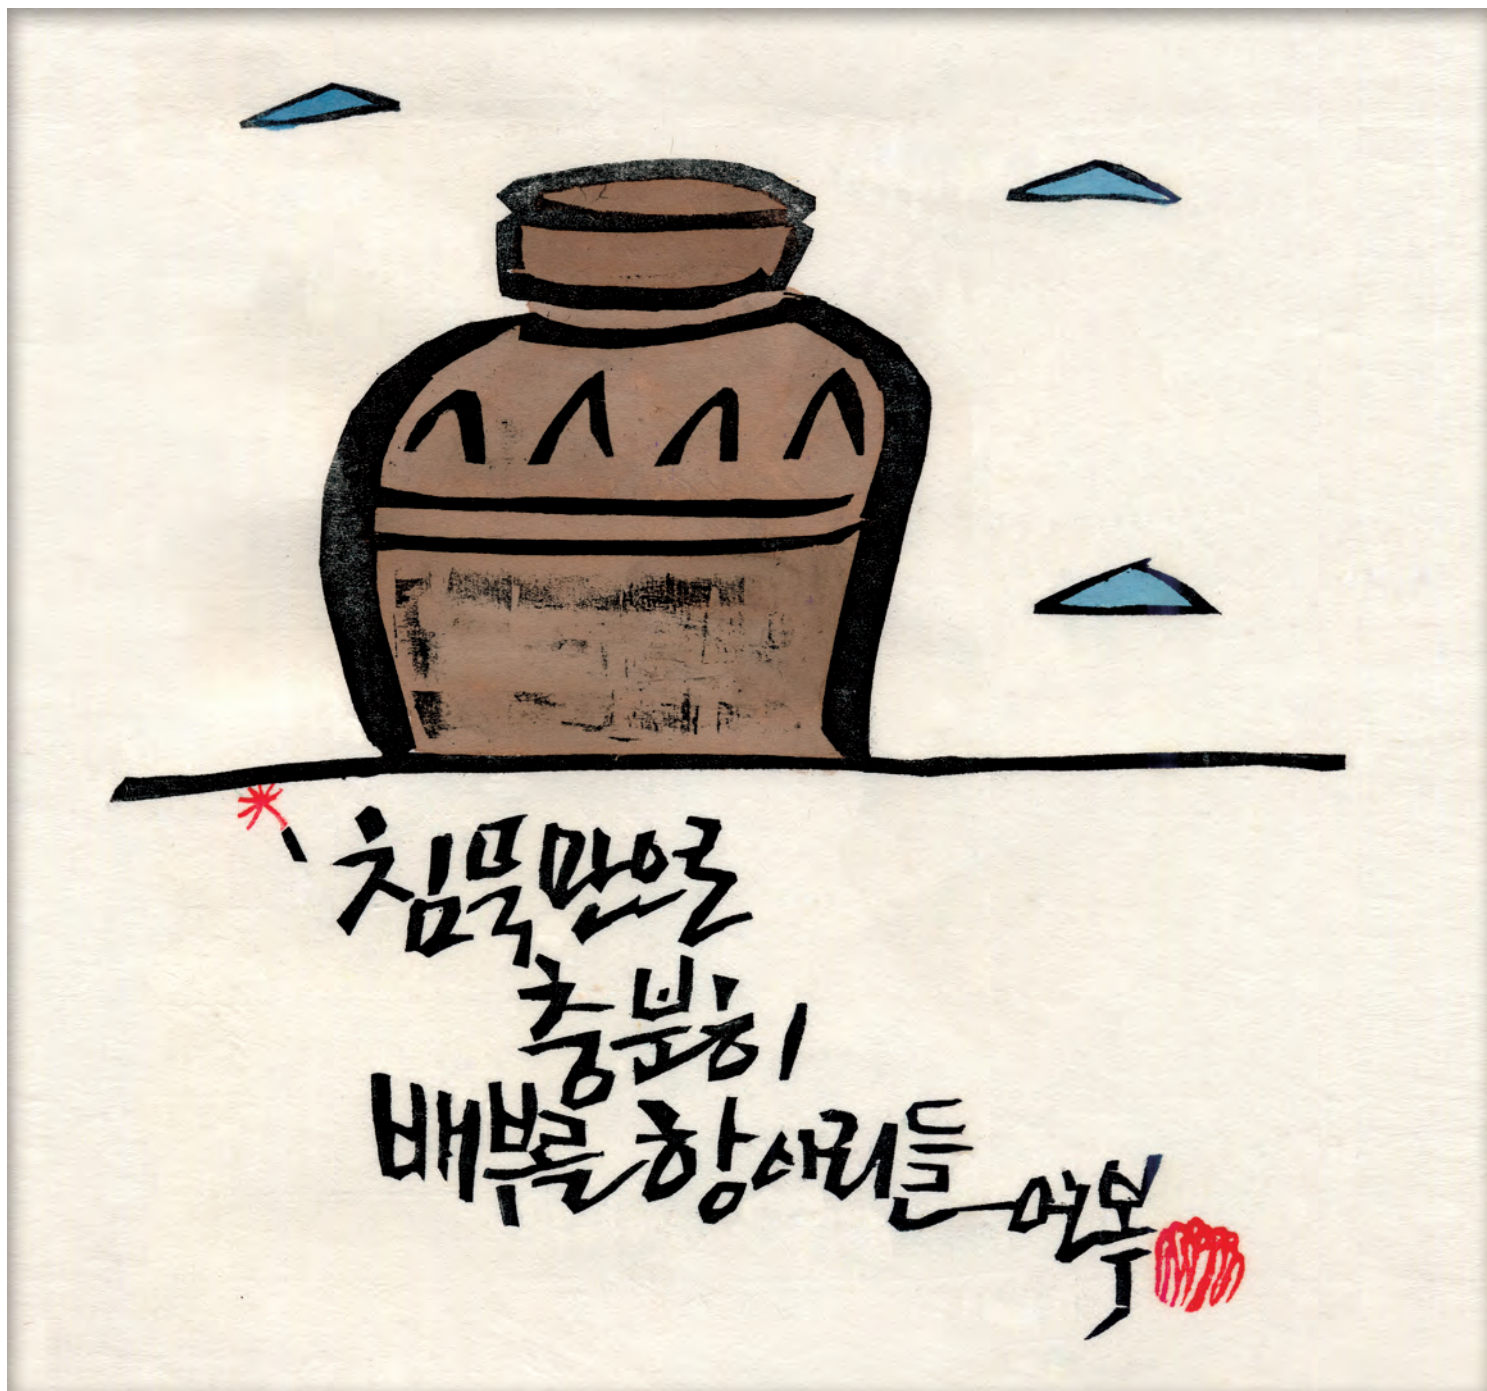 침묵만으로
충분히
배부를 항아리들